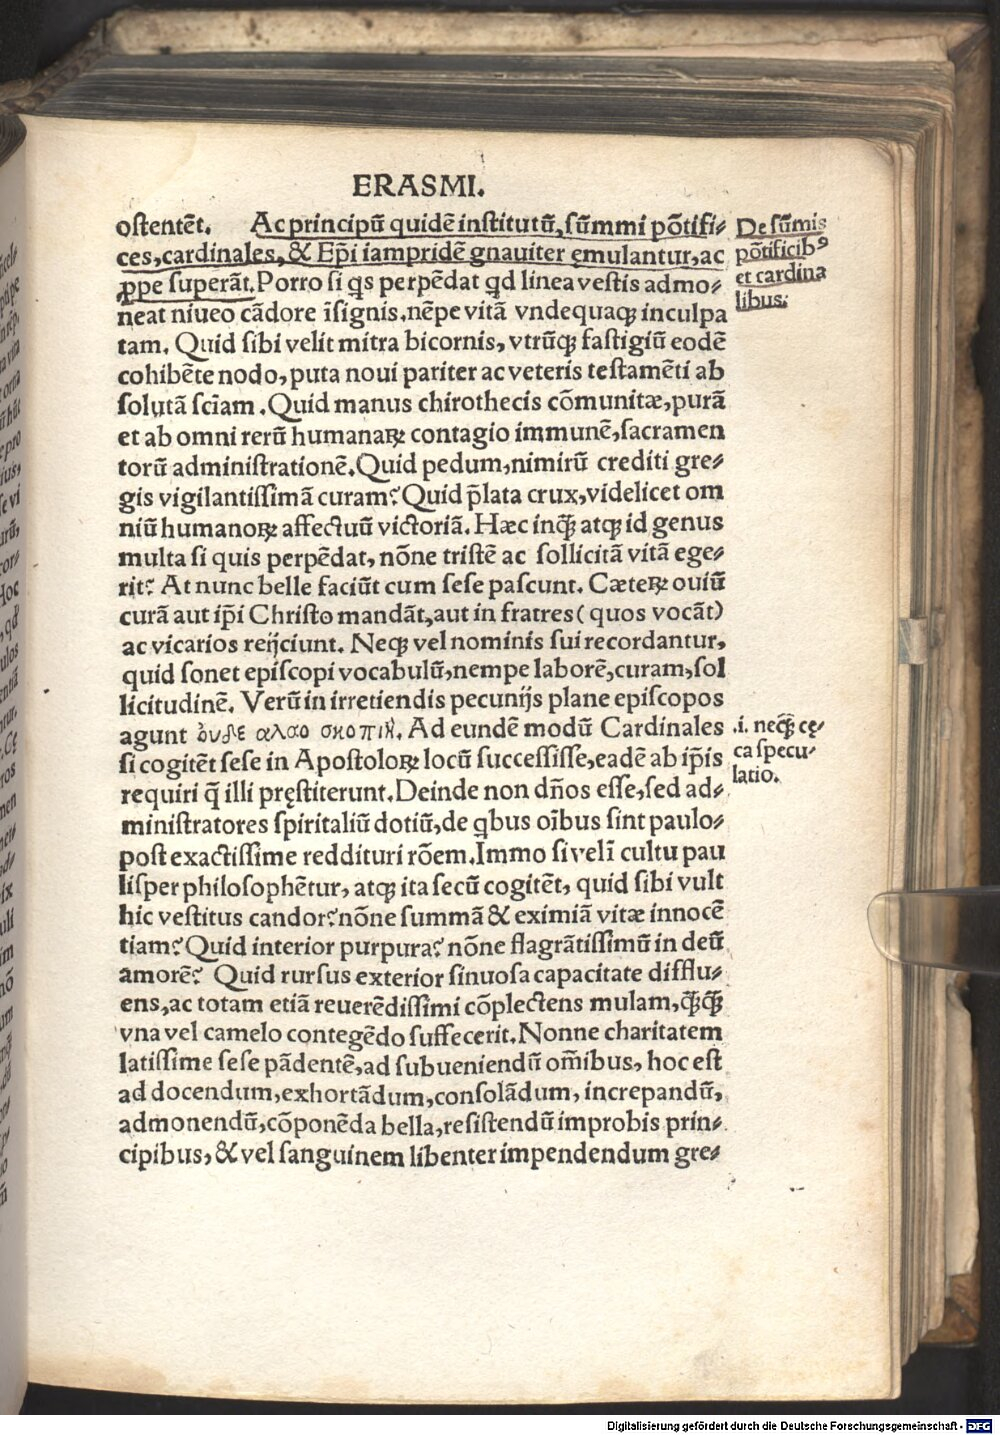 ERASMI.
ostentēt. Ac principū quidē institutū, sūmmi pōtifi⸗
ces, cardinales, & Ep̄i iampridē gnauiter ęmulantur, ac
ꝓpe superāt. Porro si qs perpēdat qd linea vestis admo⸗
neat niueo cādore īsignis, nēpe vitā vndequaqꝫ inculpa
tam. Quid sibi velit mitra bicornis, vtrūqꝫ fastigiū eodē
cohibēte nodo, puta noui pariter ac veteris testamēti ab
solutā scīam. Quid manus chirothecis cōmunitæ, purā
et ab omni rerū humanaꝝ contagio immunē, sacramen
torū administrationē. Quid pedum, nimirū crediti gre⸗
gis vigilantissimā curam? Quid p̄lata crux, videlicet om
niū humanoꝝ affectuū victoriā. Hæc inq̄ꝫ atqꝫ id genus
multa si quis perpēdat, nōne tristē ac sollicitā vitā ege⸗
rit? At nunc belle faciūt cum sese pascunt. Cæteꝝ ouiū
curā aut ip̄i Christo mandāt, aut in fratres (quos vocāt)
ac vicarios reijciunt. Neqꝫ vel nominis sui recordantur,
quid sonet episcopi vocabulū, nempe laborē, curam, sol
licitudinē. Verū in irretiendis pecunijs plane episcopos
agunt ὀυδε αλαο σκοπιὴ. Ad eundē modū Cardinales
si cogitēt sese in Apostoloꝝ locū successisse, eadē ab ip̄is
requiri q̄ illi pręstiterunt. Deinde non dn̄os esse, sed ad⸗
ministratores spiritaliū dotiū, de qbus oībus sint paulo⸗
post exactissime reddituri rōem. Immo si velī cultu pau
lisper philosophētur, atqꝫ ita secū cogitēt, quid sibi vult
hic vestitus candor? nōne summā & eximiā vitæ innocē
tiam? Quid interior purpura? nōne flagrātissimū in deū
amorē? Quid rursus exterior sinuosa capacitate difflu⸗
ens, ac totam etiā reuerēdissimi cōplectens mulam, q̄ꝫq̄ꝫ
vna vel camelo contegēdo suffecerit. Nonne charitatem
latissime sese pādentē, ad subueniendū om̄ibus, hoc est
ad docendum, exhortādum, consolādum, increpandū,
admonendū, cōponēda bella, resistendū improbis prin⸗
cipibus, & vel sanguinem libenter impendendum gre⸗
De sūmis
pōtificibꝰ
et cardina
libus:
.i. neq̄ꝫ cę⸗
ca specu⸗
latio.
Digitalisierung gefördert durch die Deutsche Forschungsgemeinschaft - DFG